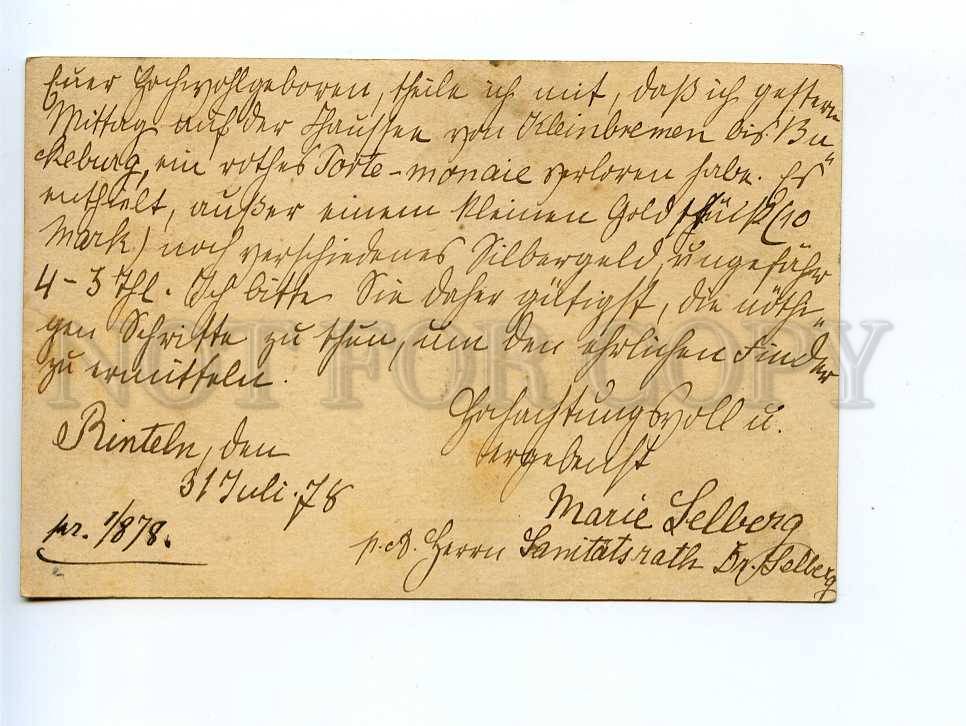 Euer Hochwohlgeboren, theile ich mit, daß ich gestern
Mittag auf der Chaussee von Kleinbremen bis Bü-
ckeburg, ein rothes Porte-monaie verloren habe. Es
enthielt, außer einem kleinen Goldstück (10
Mark) noch verschiedenes Silbergeld, ungefähr
4-5 Thl. Ich bitte Sie daher gütigst, die nöthi-
gen Schritte zu thun, um den ehrlichen Finder
zu ermitteln.
Hochachtungsvoll u.
ergebenst
Rinteln, den
31 Juli. 78
Marie Selberg
p. A. Herrn Sanitätsrath Dr. Selberg
pr. 1/8 78.
NOT FOR COPY